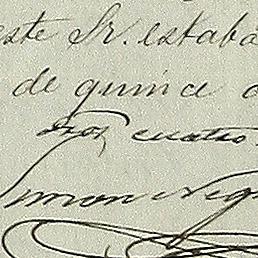 este Sr. estaba
de quince
dias cuatro
Simon Neg